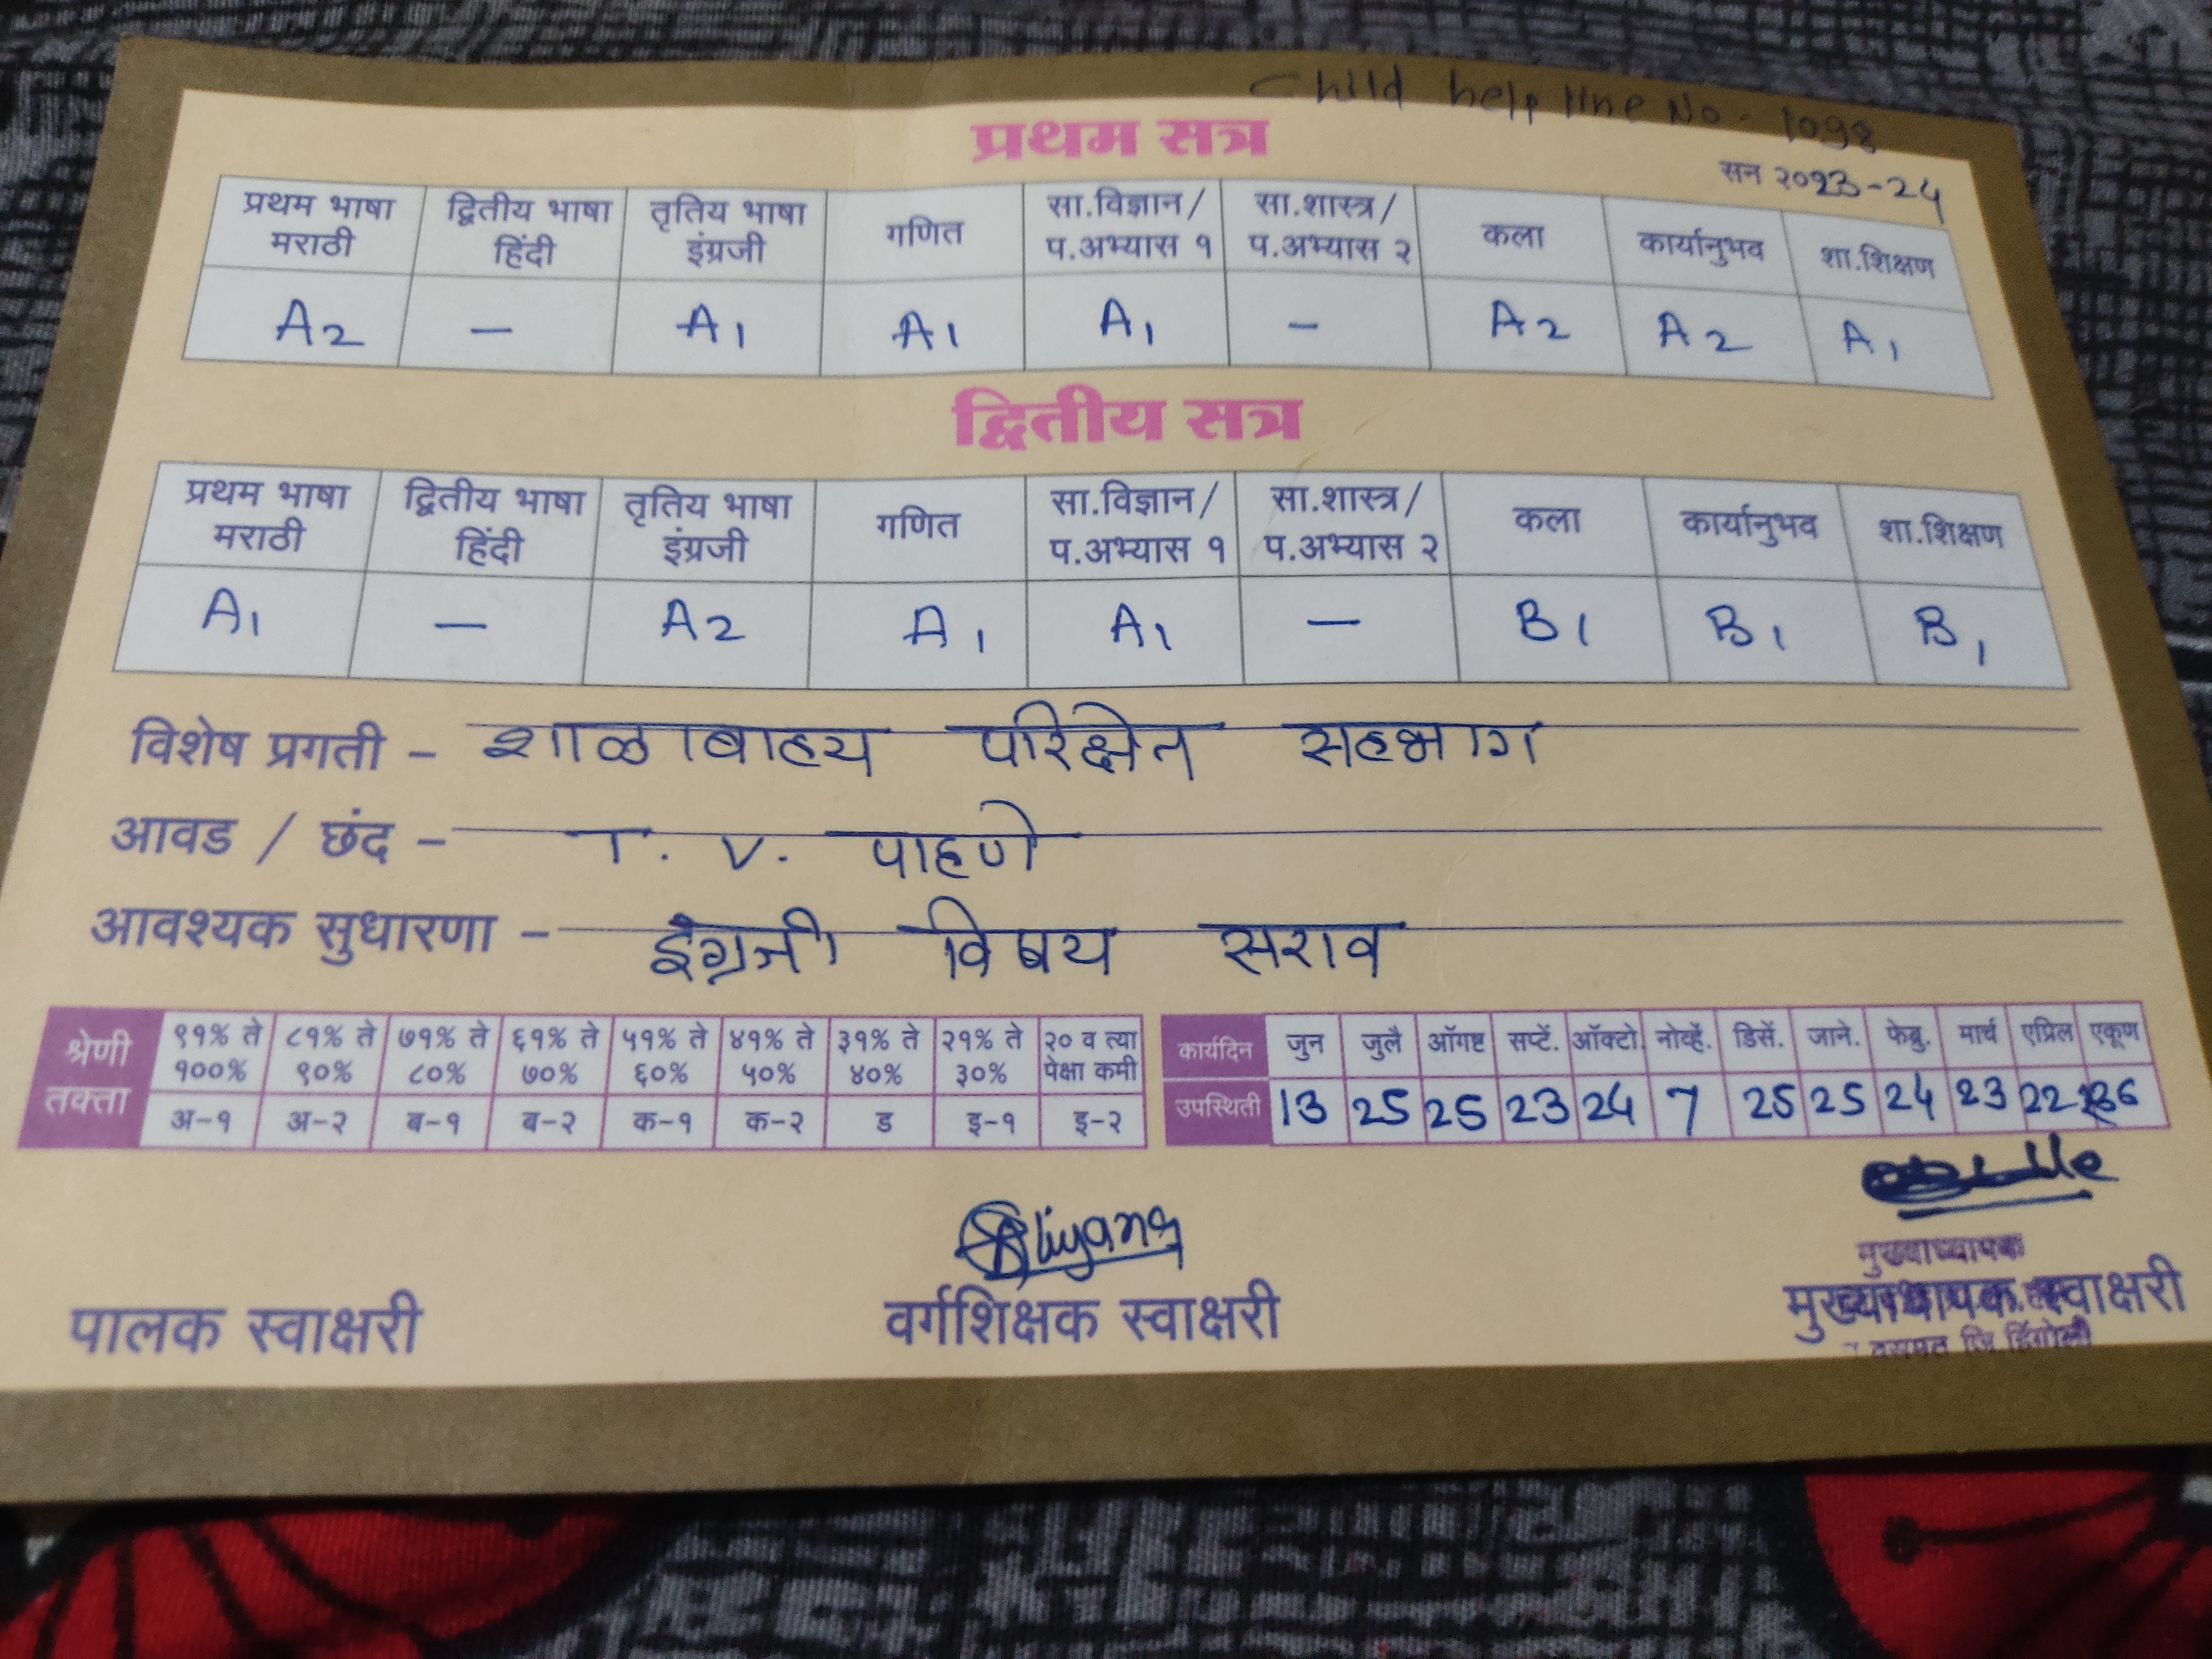 Child help line No - 1098
प्रथम सत्र
सन २०१23-24
प्रथम भाषा मराठी द्वितीय भाषा हिंदी तृतिय भाषा इंग्रजी गणित सा.विज्ञान/ प.अभ्यास १ सा.शास्त्र/ प.अभ्यास २ कला कार्यानुभव शा.शिक्षण
A2 – A1 A1 A1 – A2 A2 A1
द्वितीय सत्र
प्रथम भाषा मराठी द्वितीय भाषा हिंदी तृतिय भाषा इंग्रजी गणित सा.विज्ञान/ प.अभ्यास १ सा.शास्त्र/ प.अभ्यास २ कला कार्यानुभव शा.शिक्षण
A1 – A2 A1 A1 – B1 B1 B1
विशेष प्रगती – शाळाबाहय परिक्षेत सहभाग
आवड / छंद – T. V. पाहणे
आवश्यक सुधारणा – इंग्रजी विषय सराव
श्रेणी तक्ता ९१% ते १००% ८१% ते ९०% ७१% ते ८०% ६१% ते ७०% ५१% ते ६०% ४१% ते ५०% ३१% ते ४०% २१% ते ३०% २० व त्या पेक्षा कमी
अ-१ अ-२ ब-१ ब-२ क-१ क-२ ड इ-१ इ-२
कार्यदिन जुन जुलै ऑगष्ट सप्टें. ऑक्टो. नोव्हें. डिसें. जाने. फेब्रु. मार्च एप्रिल एकूण
उपस्थिती 13 25 25 23 24 7 25 25 24 23 22 236
मुख्याध्यापक
पालक स्वाक्षरी वर्गशिक्षक स्वाक्षरी मुख्याध्यापक स्वाक्षरी
वसमत जि.हिंगोली